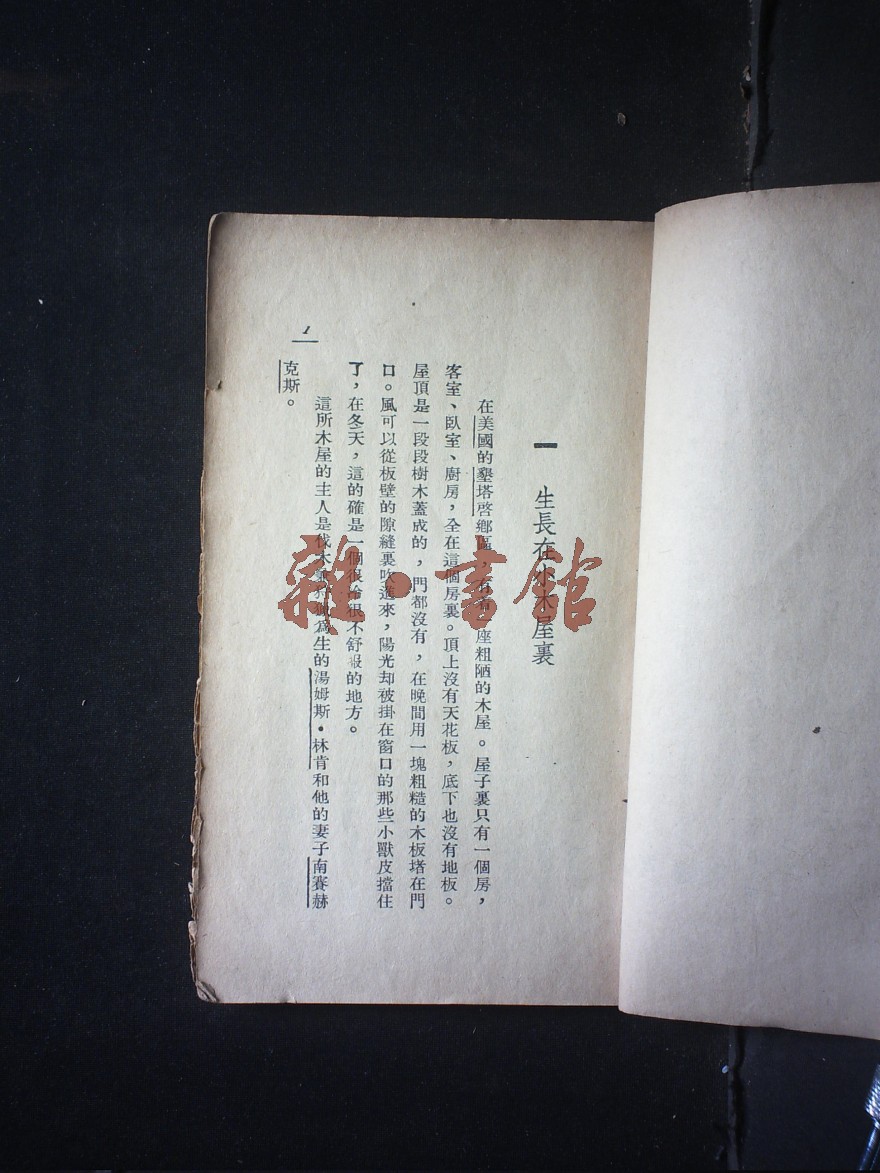 一 生長在小木屋裏
在美國的墾塔啓鄉區，有着一座粗陋的木屋。屋子裏只有一個房，
客室、臥室、廚房，全在這個房裏。頂上沒有天花板，底下也沒有地板。
屋頂是一段段樹木蓋成的，門都沒有，在晚間用一塊粗糙的木板塔在門
口。風可以從板壁的隙縫裏吹進來，陽光却被掛在窗口的那些小獸皮擋住
了，在冬天，這的確是一個很冷很不舒服的地方。
這所木屋的主人是伐木兼狩獵爲生的湯姆斯·林肯和他的妻子南賽赫
克斯。
1
雜·書館